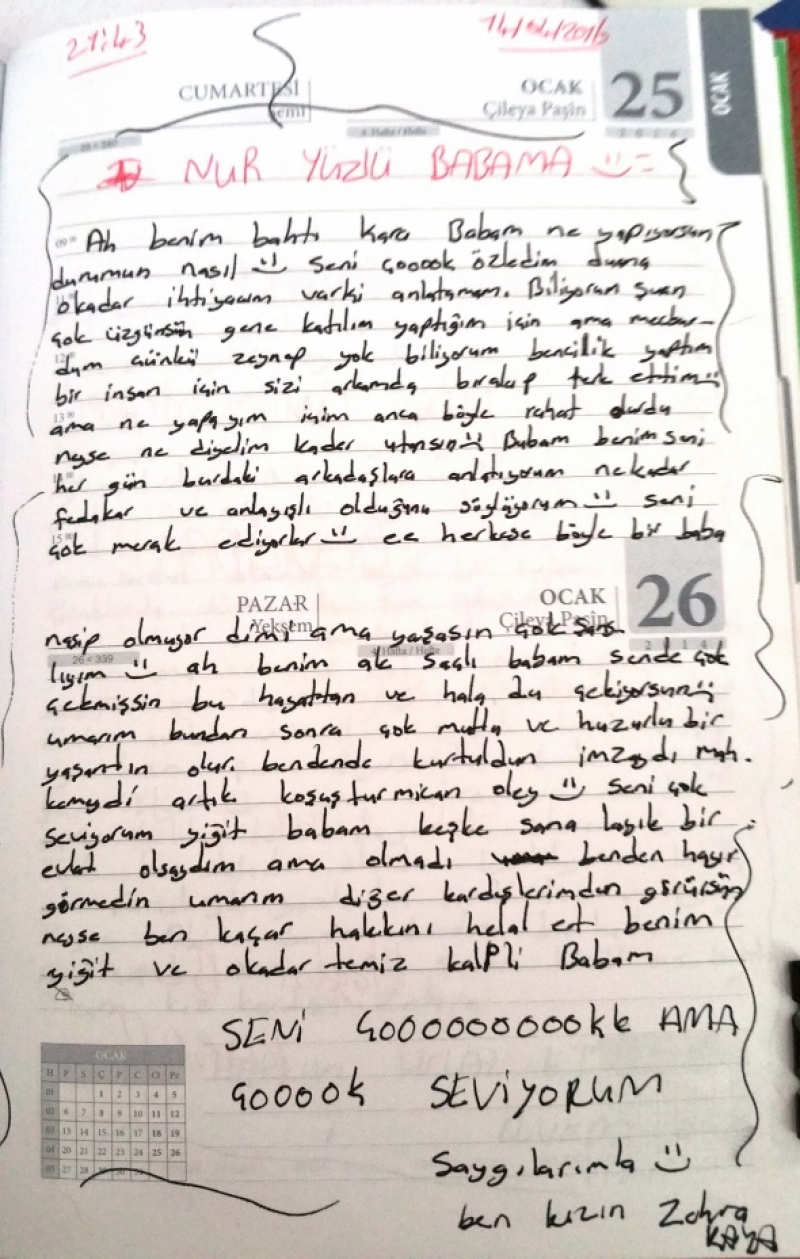 21:43
14/04/2016
CUMARTESİ
Şemî
OCAK
Çileya Paşîn
25
OCAK
4. Hafta / Hefte
NUR YÜZLÜ BABAMA
Ah benim bahtı kara Babam ne yapıyorsun?
durumun nasıl seni çooook özledim duana
okadar ihtiyacım varki anlatamam. Biliyorum şuan
çok üzgünsün gene katılım yaptığım için ama mecbur-
dum çünkü zeynep yok biliyorum bencilik yaptım
bir insan için sizi arkamda bırakıp terk ettim
ama ne yapayım içim anca böyle rahat durdu
neyse ne diyelim kader utansın Babam benim seni
her gün burdaki arkadaşlara anlatıyorum nekadar
fedakar ve anlayışlı olduğunu söylüyorum seni
çok merak ediyorlar ee herkese böyle bir baba
PAZAR
Yekşem
OCAK
Çileya Paşîn
26
26 < 339
4. Hafta / Hefte
nasip olmuyor dimi ama yaşasın çok şans-
lıyım ah benim ak saçlı babam sende çok
çekmişsin bu hayattan ve hala da çekiyorsun
umarım bundan sonra çok mutlu ve huzurlu bir
yaşantın olur. bendende kurtuldun imzaydı mah.
kemeydi artık koşuşturmican oley seni çok
seviyorum yiğit babam keşke sana layık bir
evlat olsaydım ama olmadı benden hayır
görmedin umarım diğer kardişlerimden görürsün
neyse ben kaçar hakkını helal et benim
yiğit ve okadar temiz kalpli Babam
SENİ ÇOOOOOOOOOOkk AMA
ÇOOOOk SEVİYORUM
OCAK
H P S Ç P C Ct Pz
01 1 2 3 4 5
02 6 7 8 9 10 11 12
03 13 14 15 16 17 18 19
04 20 21 22 23 24 25 26
05 27 28 29 30 31
Saygılarımla
ben kızın Zehra
KAYA